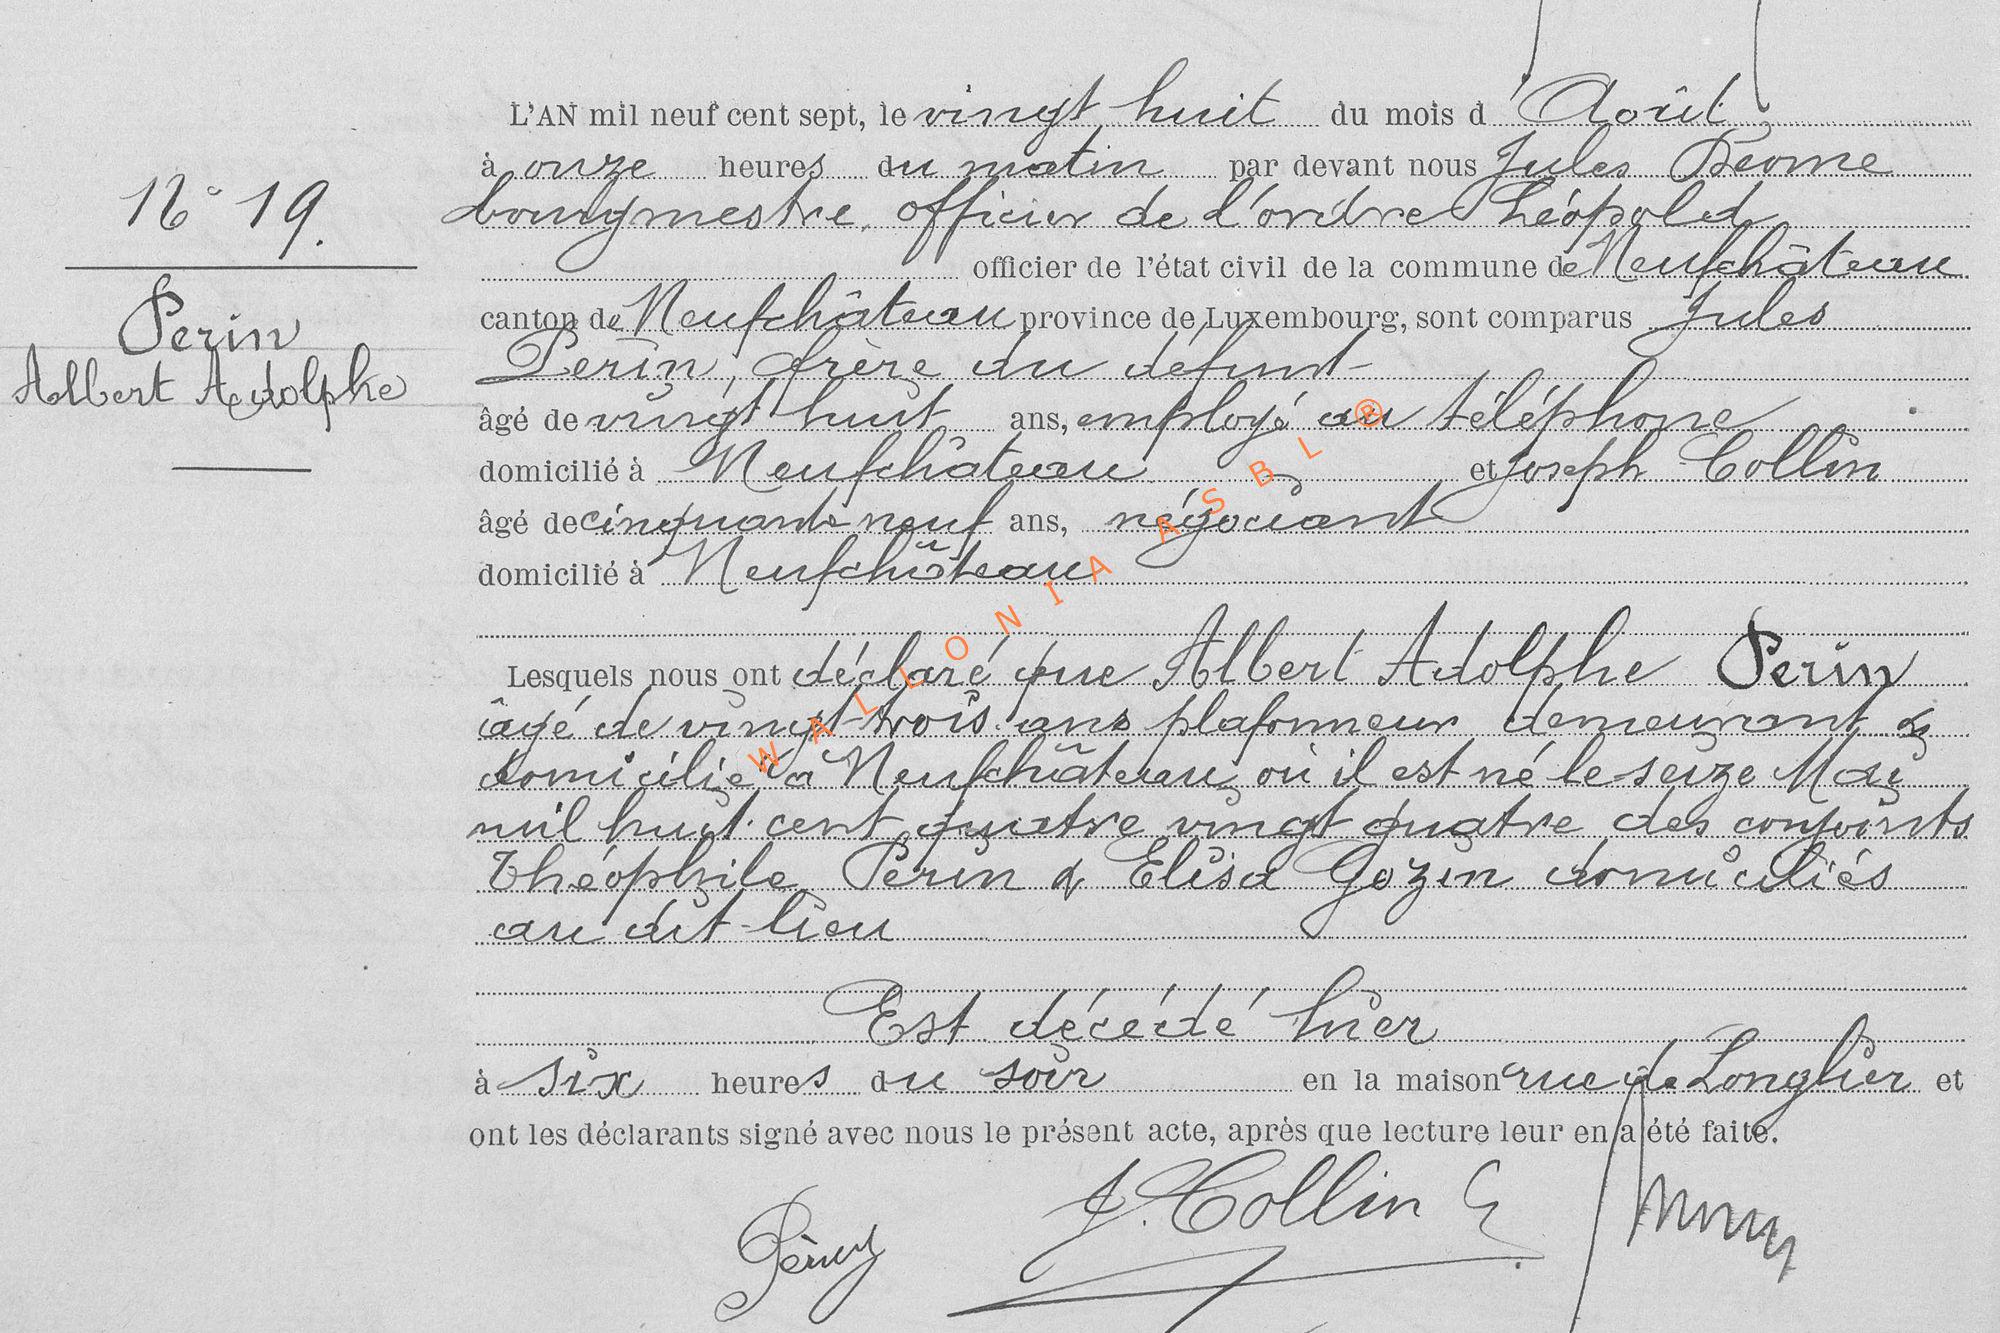 N° 19.
Perin
Albert Adolphe
L'AN mil neuf cent sept, le vingt huit du mois d'Août
à onze heures du matin par devant nous Jules
bourgmestre, officier de l'ordre Léopold
officier de l'état civil de la commune de Neufchâteau
canton de Neufchâteau province de Luxembourg, sont comparus Jules
Perin, frère du défunt
âgé de vingt huit ans, employé au téléphone
domicilié à Neufchâteau et Joseph Collin
âgé de cinquante neuf ans, négociant
domicilié à Neufchâteau
Lesquels nous ont déclaré que Albert Adolphe Perin
âgé de vingt-trois ans plafonneur demeurant &
domicilié à Neufchâteau, où il est né le seize Mai
mil huit cent quatre vingt quatre des conjoints
Théophile Perin & Elisa Gozin domiciliés
au dit-lieu
Est décédé hier
à six heures du soir en la maison rue de Longlier et
ont les déclarants signé avec nous le présent acte, après que lecture leur en a été faite.
J. Collin
WALLONIA ASBL ®